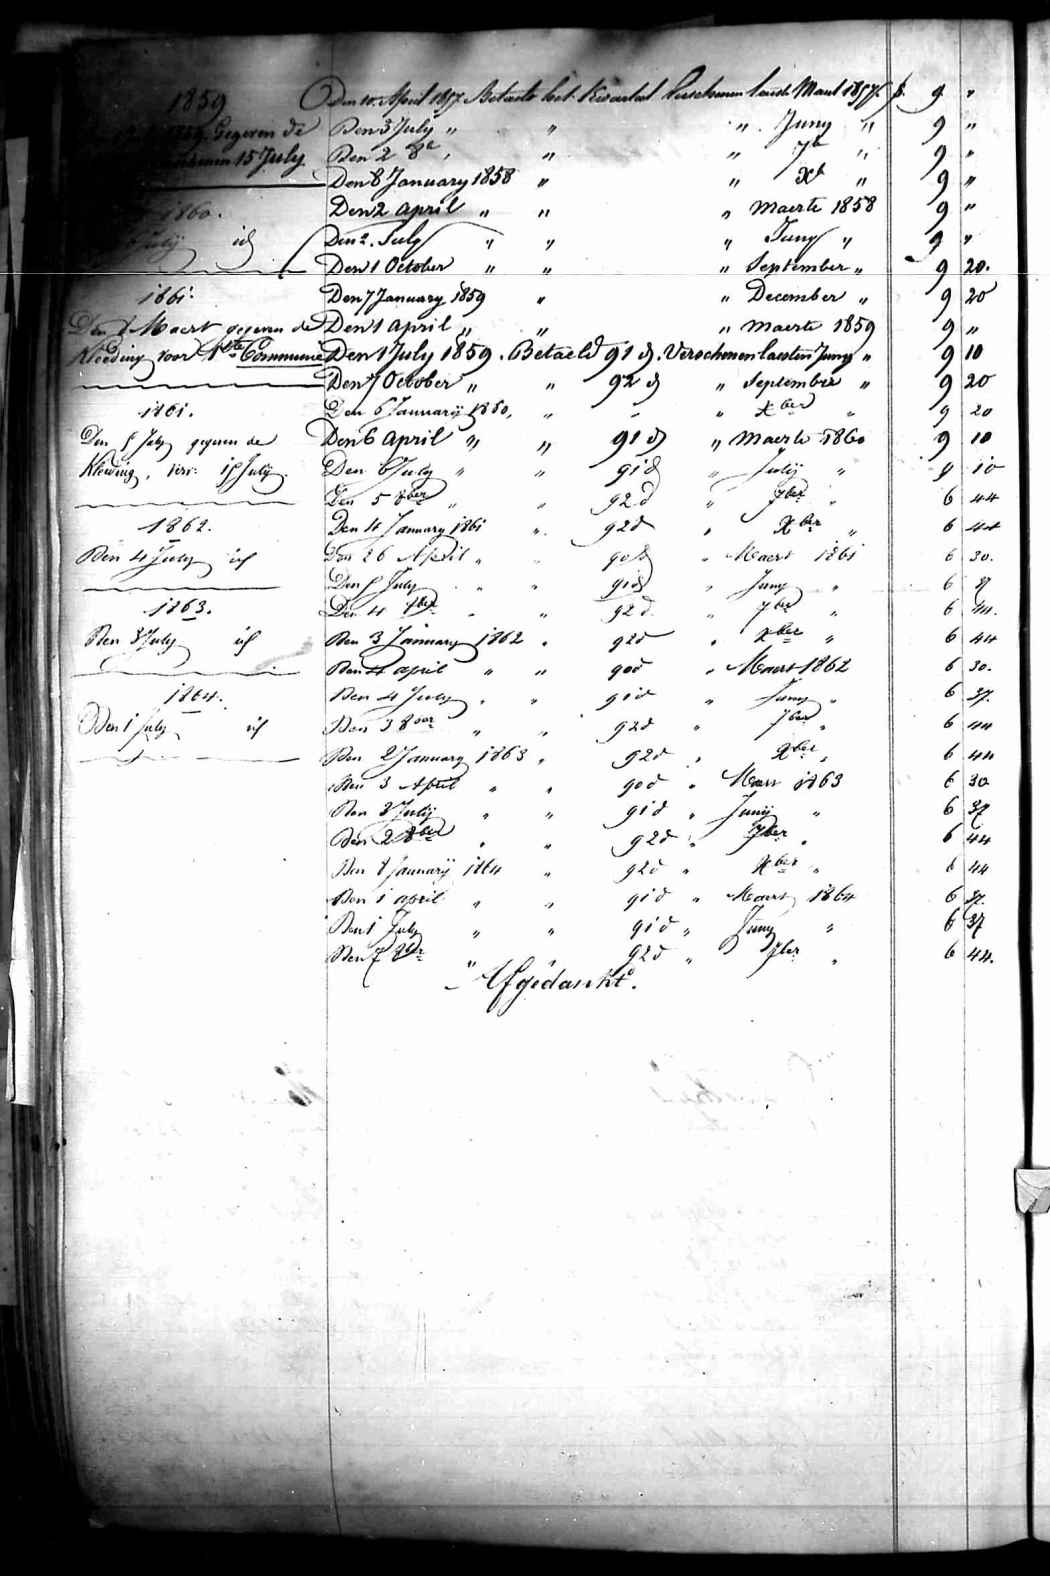 1859
Gegeven de
15 July
1860.
July id
1861.
Den 1 Maert gegeven de
Kleeding voor 1ste Communie
1861.
Den 5 July gegeven de
Kleeding, ver: 15 July.
1862.
Den 4 July id
1863.
Den 3 July id
1864.
Den 1 July id
Den 10 April 1857 Betaelt het Kwartael Verschenen laeste Maert 1857. f. 9 "
Den 3 July " " " Juny " 9 "
Den 2 8e " " " 7b " 9 "
Den 8 January 1858 " " Xb " 9 "
Den 2 april " " " Maerte 1858 9 "
Den 2. July " " " Juny " 9 "
Den 1 October " " " September " 9 20.
Den 7 January 1859 " " December " 9 20
Den 1 april " " " Maerte 1859 9 "
Den 1 July 1859. Betaeld 91 d. Verschenen laesten Juny " 9 10
Den 7 October " " 92 d " September " 9 20
Den 6 Januarij 1860, " " " Xber " 9 20
Den 6 April " " 91 d " Maerte 1860 9 10
Den 6 July " " 91 d " July " 9 10
Den 5 8ber " " 92 d " 7ber " 6 44
Den 4 January 1861 " 92 d " Xber " 6 44
Den 26 April " " 90 d " Maert 1861 6 30.
Den 5 July " " 91 d " Juny " 6 37
Den 4 8ber " " 92 d. " 7ber " 6 44.
Den 3 January 1862 " 92 d " Xber " 6 44
Den 4 april " " 90 d " Maert 1862 6 30.
Den 4 July " " 91 d " Juny " 6 37.
Den 3 8ber " " 92 d " 7ber " 6 44
Den 2 January 1863 " 92 d " Xber " 6 44
Den 3 April " " 90 d " Maert 1863 6 30
Den 3 July " " 91 d " Junij " 6 37
Den 2 8ber " " 92 d " 7ber " 6 44
Den 8 Januarij 1864 " 92 d " Xber " 6 44
Den 1 april " " 91 d " Maert 1864 6 37.
Den 1 July " " 91 d " Juny " 6 37
Den 7 8ber " " 92 d " 7ber " 6 44.
Afgedankt.